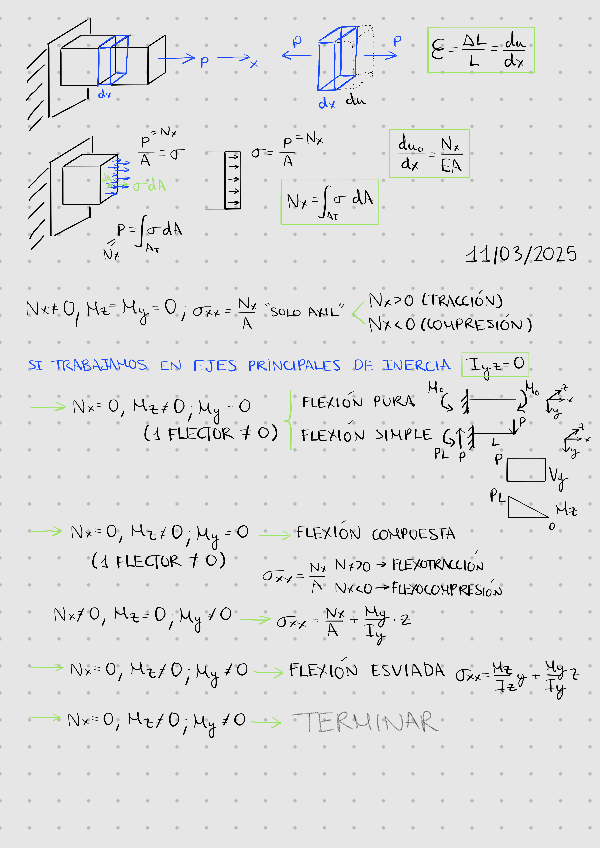 P → x
dx
P P
dx du
ε = ΔL/L = du/dx
P = Nx
P/A = σ
σ dA
P = ∫_{AT} σ dA
Nx
σ = P/A = Nx
Nx = ∫_{AT} σ dA
du₀/dx = Nx/EA
11/03/2025
Nx ≠ 0, Mz = My = 0; σxx = Nx/A "SOLO AXIL"
Nx > 0 (TRACCIÓN)
Nx < 0 (COMPRESIÓN)
SI TRABAJAMOS EN EJES PRINCIPALES DE INERCIA Iyz = 0
→ Nx = 0, Mz ≠ 0; My = 0
(1 FLECTOR ≠ 0)
FLEXIÓN PURA M₀ M₀ z x y
FLEXIÓN SIMPLE PL P L P z x y
P Vy
PL Mz
0
→ Nx = 0, Mz ≠ 0; My = 0 → FLEXIÓN COMPUESTA
(1 FLECTOR ≠ 0)
σxx = Nx/A Nx > 0 → FLEXOTRACCIÓN
Nx < 0 → FLEXOCOMPRESIÓN
Nx ≠ 0, Mz = 0; My ≠ 0 → σxx = Nx/A + My/Iy · z
→ Nx = 0, Mz ≠ 0; My ≠ 0 → FLEXIÓN ESVIADA σxx = Mz/Iz y + My/Iy z
→ Nx = 0, Mz ≠ 0; My ≠ 0 → TERMINAR